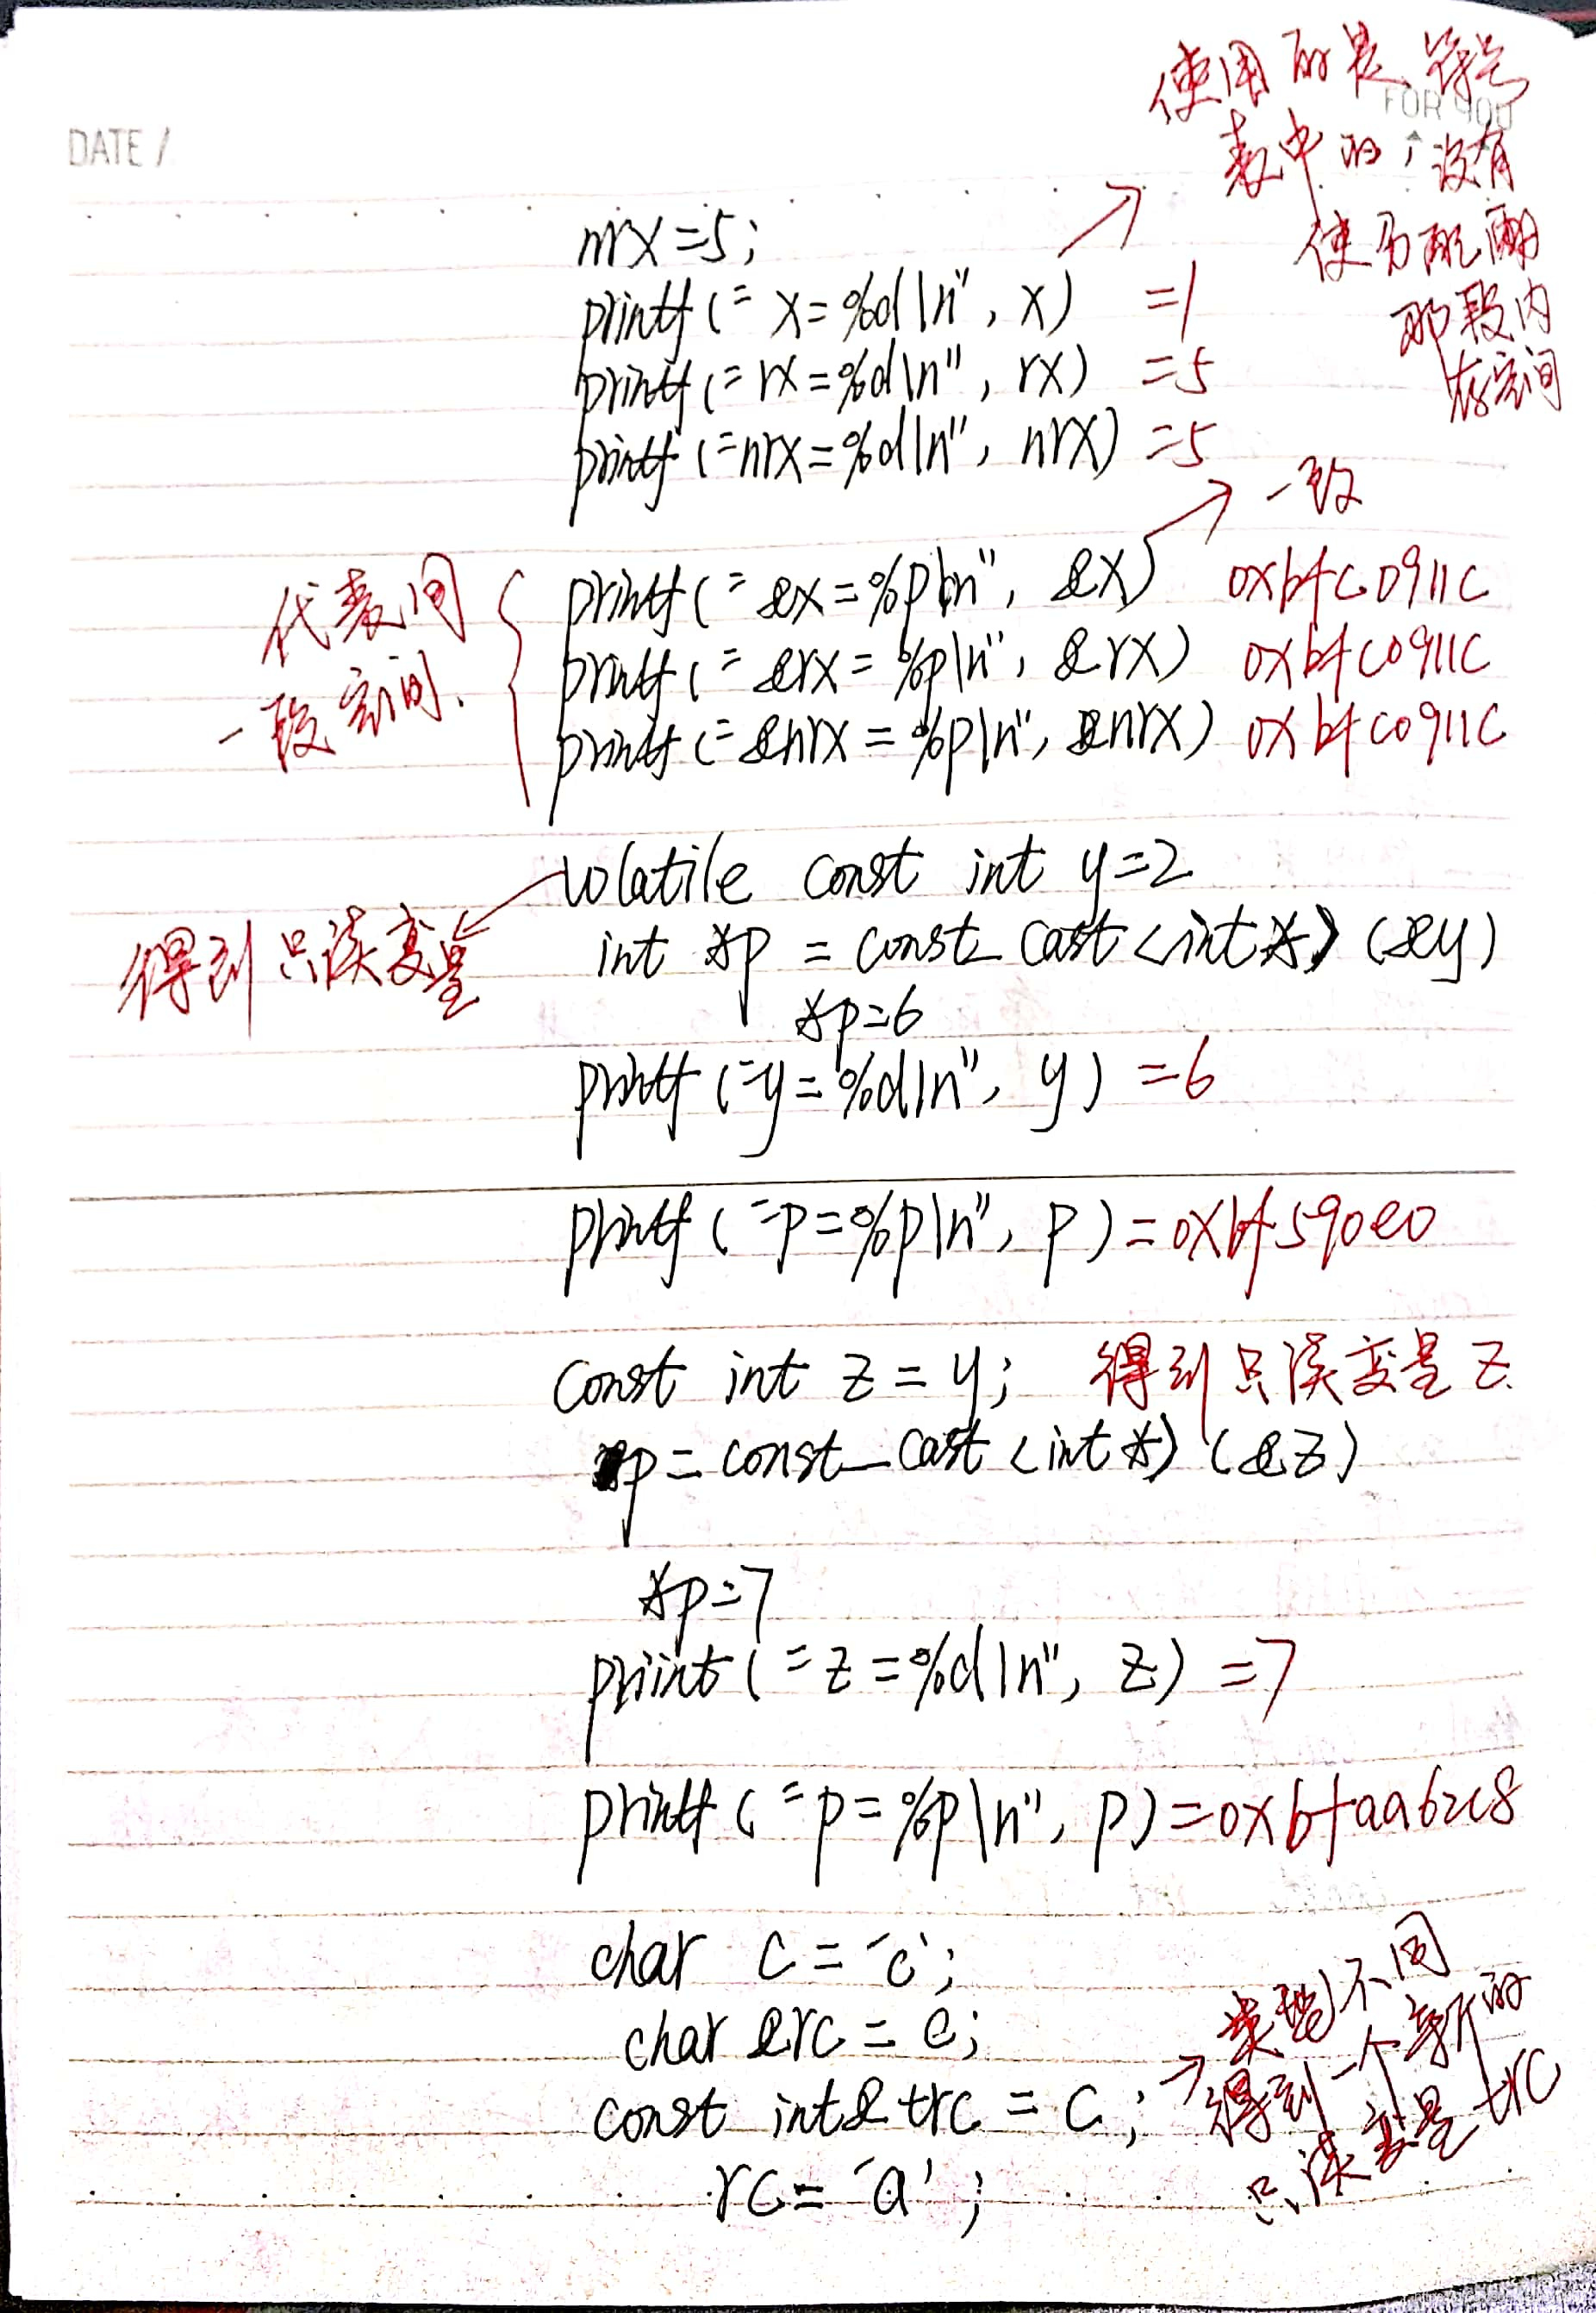 使用的是符号
FOR YOU
DATE /
表中的,没有
使用分配的
那段内
存空间
nrx=5;
printf("x=%d\n", x) =1
printf("rx=%d\n", rx) =5
printf("nrx=%d\n", nrx) =5
一致
代表同
一段空间.
printf("&x=%p\n", &x) 0xbfc0911c
printf("&rx=%p\n", &rx) 0xbfc0911c
printf("&nrx=%p\n", &nrx) 0xbfc0911c
volatile const int y=2
得到只读变量
int *p = const_cast<int*>(&y)
*p=6
printf("y=%d\n", y) =6
printf("p=%p\n", p)=0xbf590e0
const int z = y; 得到只读变量z.
p=const_cast<int*>(&z)
*p=7
priint("z=%d\n", z) =7
printf("p=%p\n", p)=0xbfaa62c8
char c='c';
char &rc = c;
const int& trc = c;
类型不同
得到一个新的
只读变量trc
rc='a';